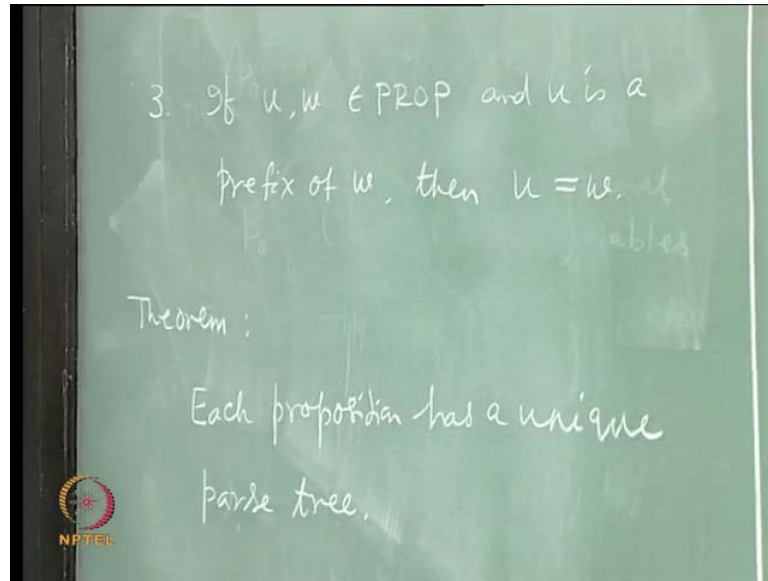 3. If u, w ∈ PROP and u is a
prefix of w, then u = w.
Theorem :
Each proposition has a unique
parse tree.
NPTEL